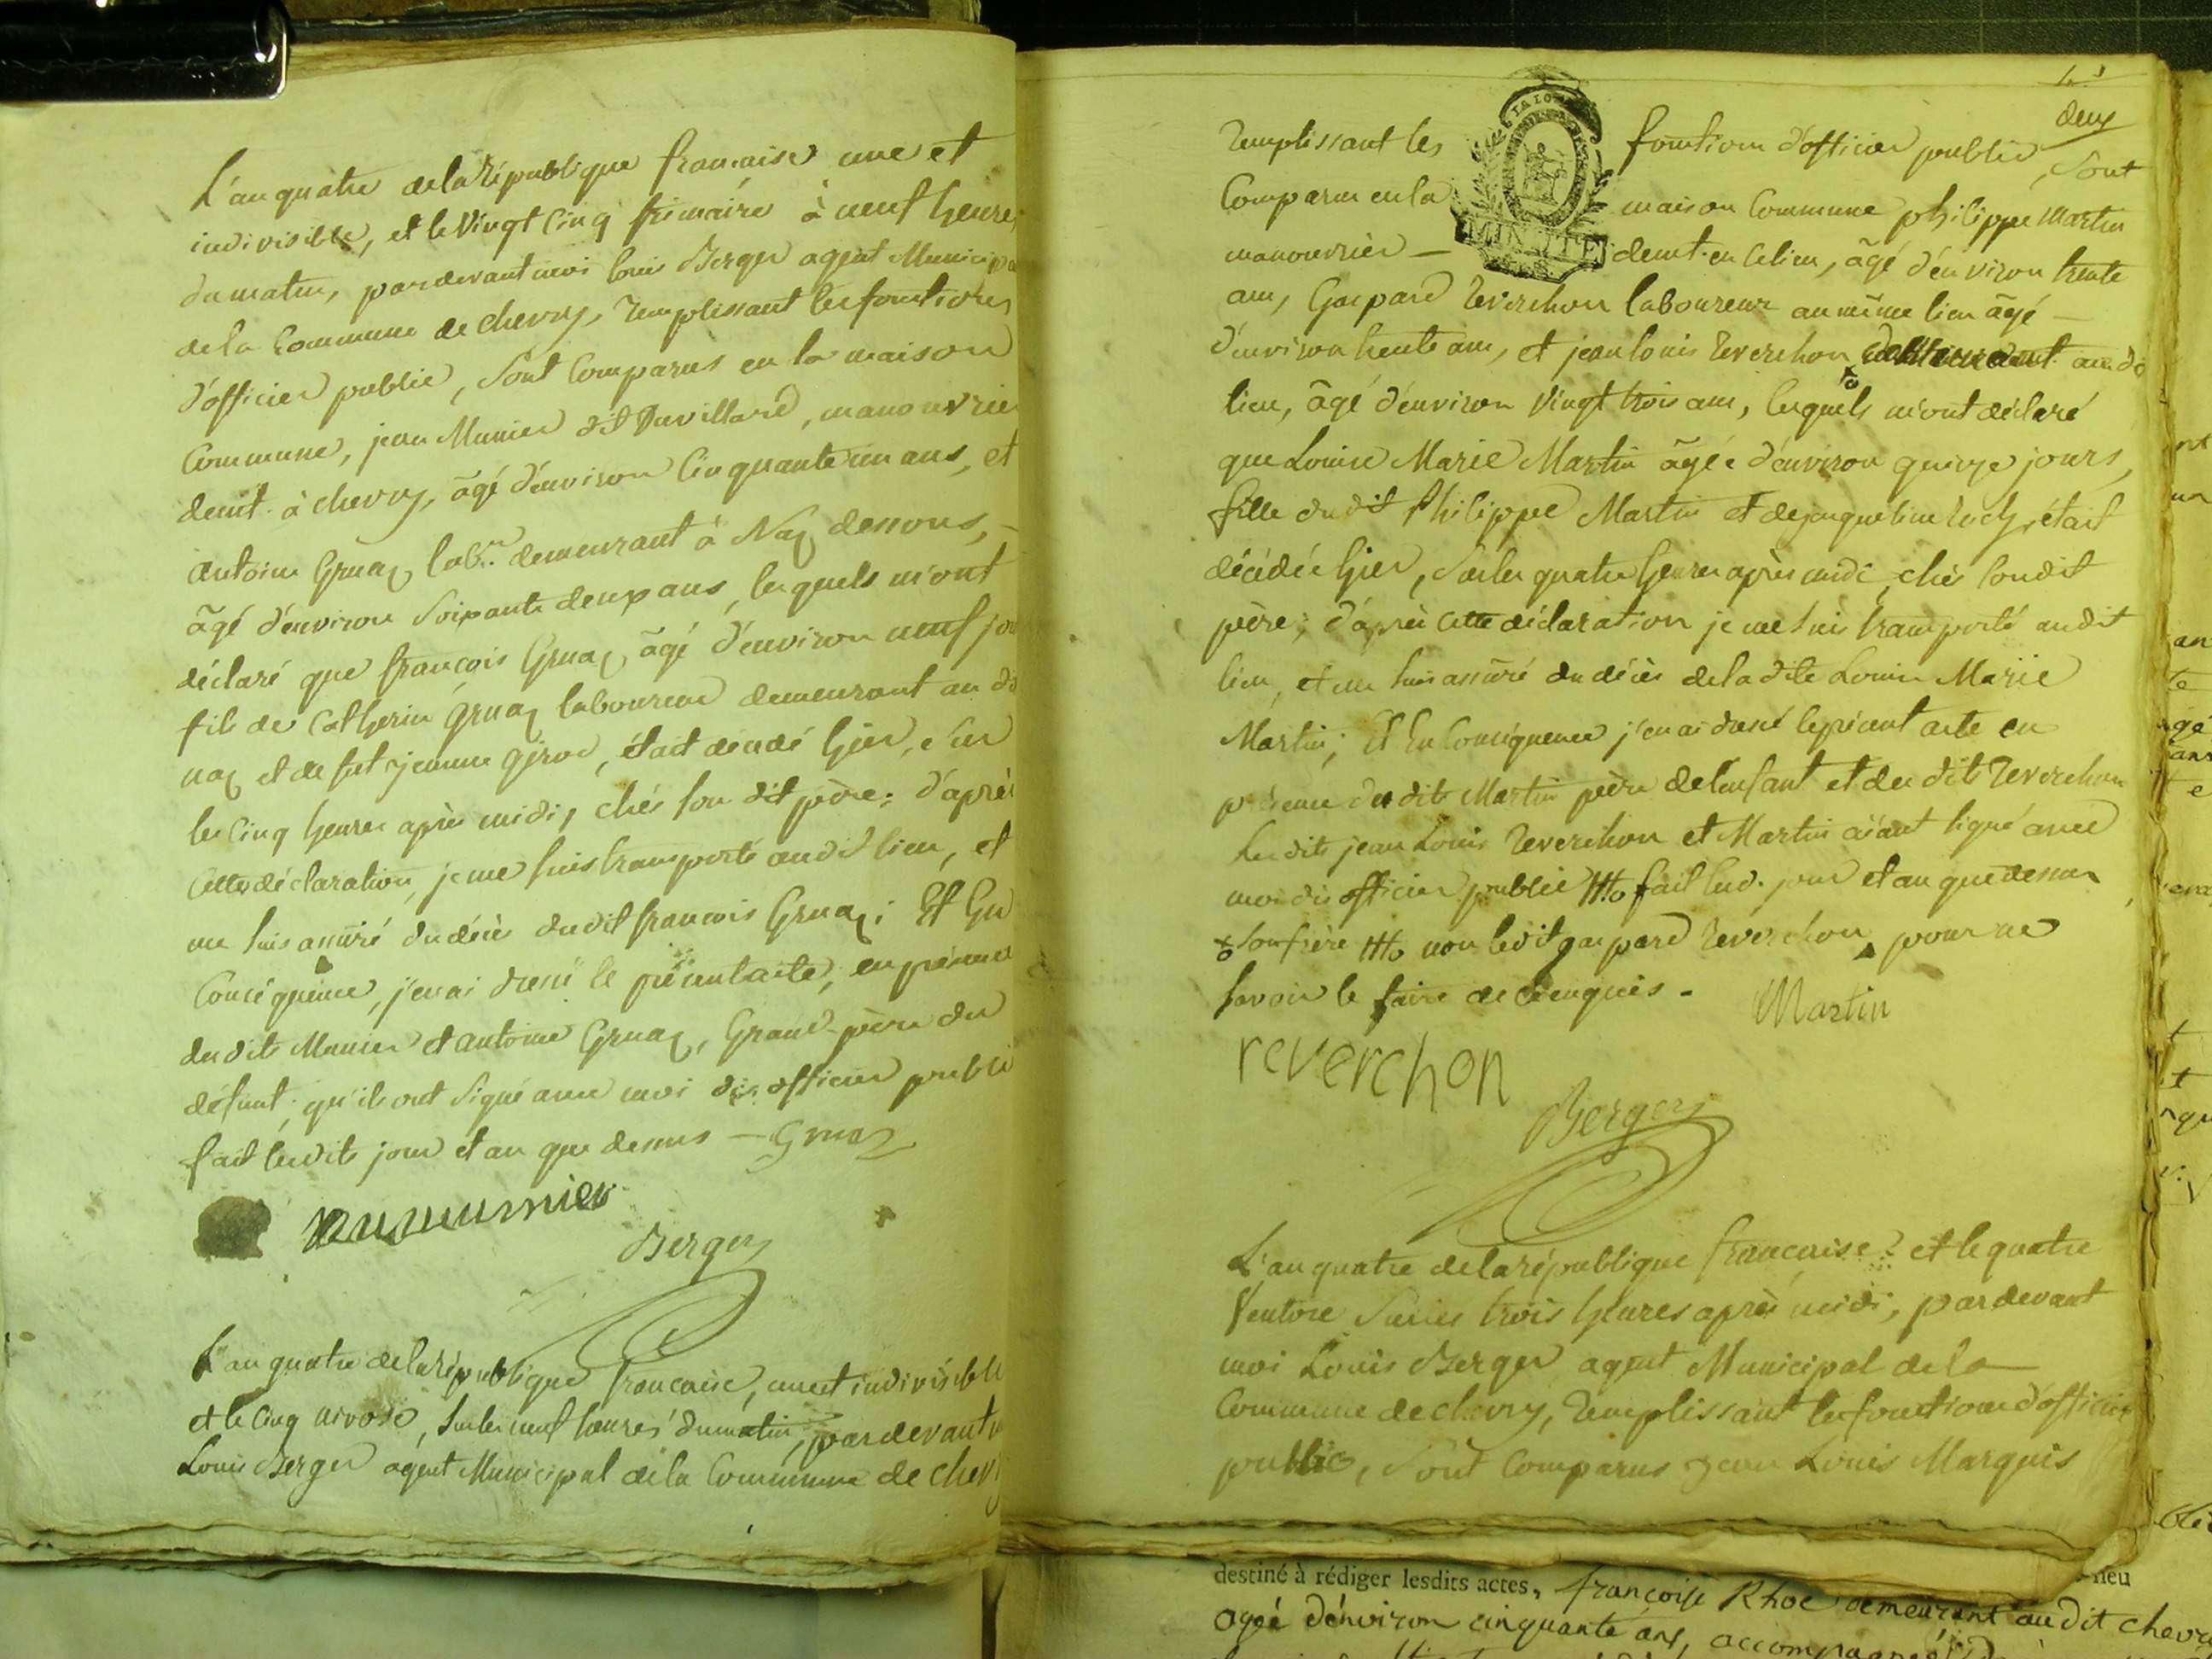 L'an quatre de la république francaise une et
indivisible, et le Vingt Cinq frimaire à neuf heures
du matin, pardevant moi louis Berger agent Municipa
de la Commune de chevry, remplissant les fonctions
d'officier public, sont Comparus en la maison
Commune, jean Munier dit Duvillard, manouvrier
demt. à chevry, âgé d'environ Cinquante un ans, et
antoine Gruaz labr. demeurant à Naz dessous,
âgé d'environ soixante deux ans, lesquels m'ont
déclaré que françois Gruaz âgé d'environ neuf jou
fils de Gruaz laboureur demeurant au dt
naz et de fut jeanne girod, était décédé hier, sur
les Cinq heures après midi, chés son dit père; d'après
Cette déclaration, je me suis transporté audit lieu, et
me suis assuré du décès dudit francois Gruaz; Et En
Conséquence, j'en ai dressé le présent acte, en présence
desdits Munier et antoine Gruaz, Grand-père du
défunt, qu'ils ont signé avec moi dit officier public
fait lesdits jour et an que dessus — Gruaz
Berger
L'an quatre de la république francaise, une et indivisible
et le Cinq nivose, sur les neuf heures du matin, pardevant
Louis Berger agent Municipal de la Commune de chevry
deux
remplissant les fonctions d'officier public, sont
LA LOI
Comparus en la maison Commune philippe Martin
manouvrier — demt. en ce lieu, âgé d'environ trente
MINUTE
ans, Gaspard Reverchon laboureur au même lieu âgé —
d'environ trente ans, et jean louis Reverchon au dt
lieu, âgé d'environ Vingt trois ans, lesquels m'ont déclaré
que Louise Marie Martin âgée d'environ quinze jours,
fille dudit Philippe Martin et de jaqueline rochy, était
décédée hier, sur les quatre heures après midi, chés sondit
père; d'après cette déclaration je me suis transporté audit
lieu, et me suis assuré du décès de la dite Louise Marie
Martin; Et En Conséquence j'en ai dressé le présent acte en
présence dudit Martin père de l'enfant et desdits Reverchon
Lesdits jean Louis Reverchon et Martin aïant signé avec
moi dit officier public fait lesd. jour et an que dessus
son frère non ledit gaspard Reverchon pour ne
savoir le faire de ce enquis.
Martin
reverchon
Berger
L'an quatre de la république francaise et le quatre
Ventose sur les trois heures après midi, pardevant
moi Louis Berger agent Municipal de la
Commune de chevry, remplissant les fonctions d'officier
public, sont Comparus jean Louis Marquis
destiné à rédiger lesdits actes, françoise Rhoc demeurant audit chevry
agée d'environ cinquante ans,